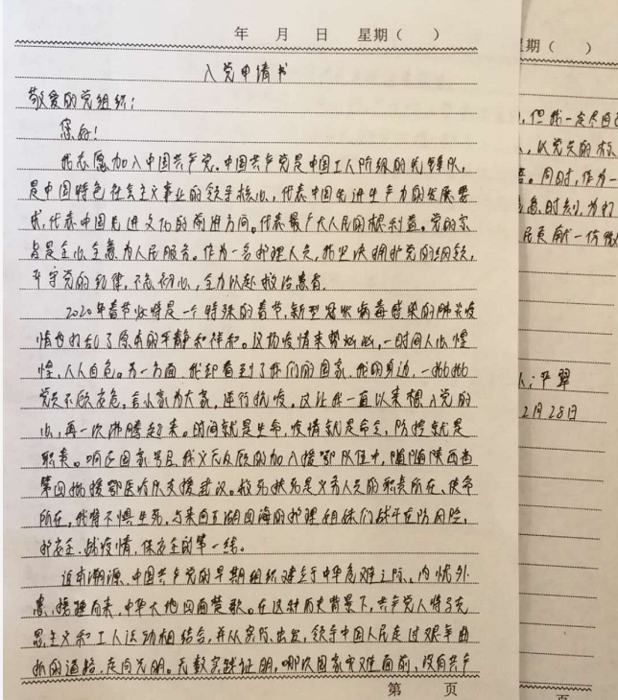 年 月 日 星期（ ）
入党申请书
敬爱的党组织：
您好！
我志愿加入中国共产党。中国共产党是中国工人阶级的先锋队，
是中国特色社会主义事业的领导核心，代表中国先进生产力的发展要
求，代表中国先进文化的前进方向。代表最广大人民的根利益。党的宗
旨是全心全意为人民服务。作为一名护理人员，我坚决拥护党的纲领，
遵守党的纪律，不忘初心，全力以赴救治患者。
2020年春节必将是一个特殊的春节，新型冠状病毒感染的肺炎疫
情也打乱了原有的平静和祥和。这场疫情来势汹汹，一时间人心惶
惶，人人自危。另一方面，我却看到了我们的国家，我的身边，一批批
党员不顾安危，舍小家为大家，逆行抗疫。这让我一直以来想入党的
心，再一次沸腾起来。时间就是生命，疫情就是命令，防控就是
职责。响应国家号召，我义无反顾的加入援鄂队伍中，随陕西省
第四批援鄂医疗队支援武汉。救死扶伤是义务人员的职责所在、使命
所在，我将不惧生死，与来自五湖四海的护理姐妹们战斗在防风险，
护安全、战疫情，保安全的第一线。
追本溯源，中国共产党的早期组织建立于中华危难之际，内忧外
患，接踵而来，中华大地四面楚歌。在这种历史背景下，共产党人将马克
思主义和工人运动相结合，并从实际出发，领导中国人民走过艰辛曲
折的道路，走向光明。无数实践证明，哪次国家灾难面前，没有共产
第 页
期（ ）
，但我一定尽自己
，以党员的标
。同时，作为一
时刻，为打
民贡献一份微
人：
2月28日
页